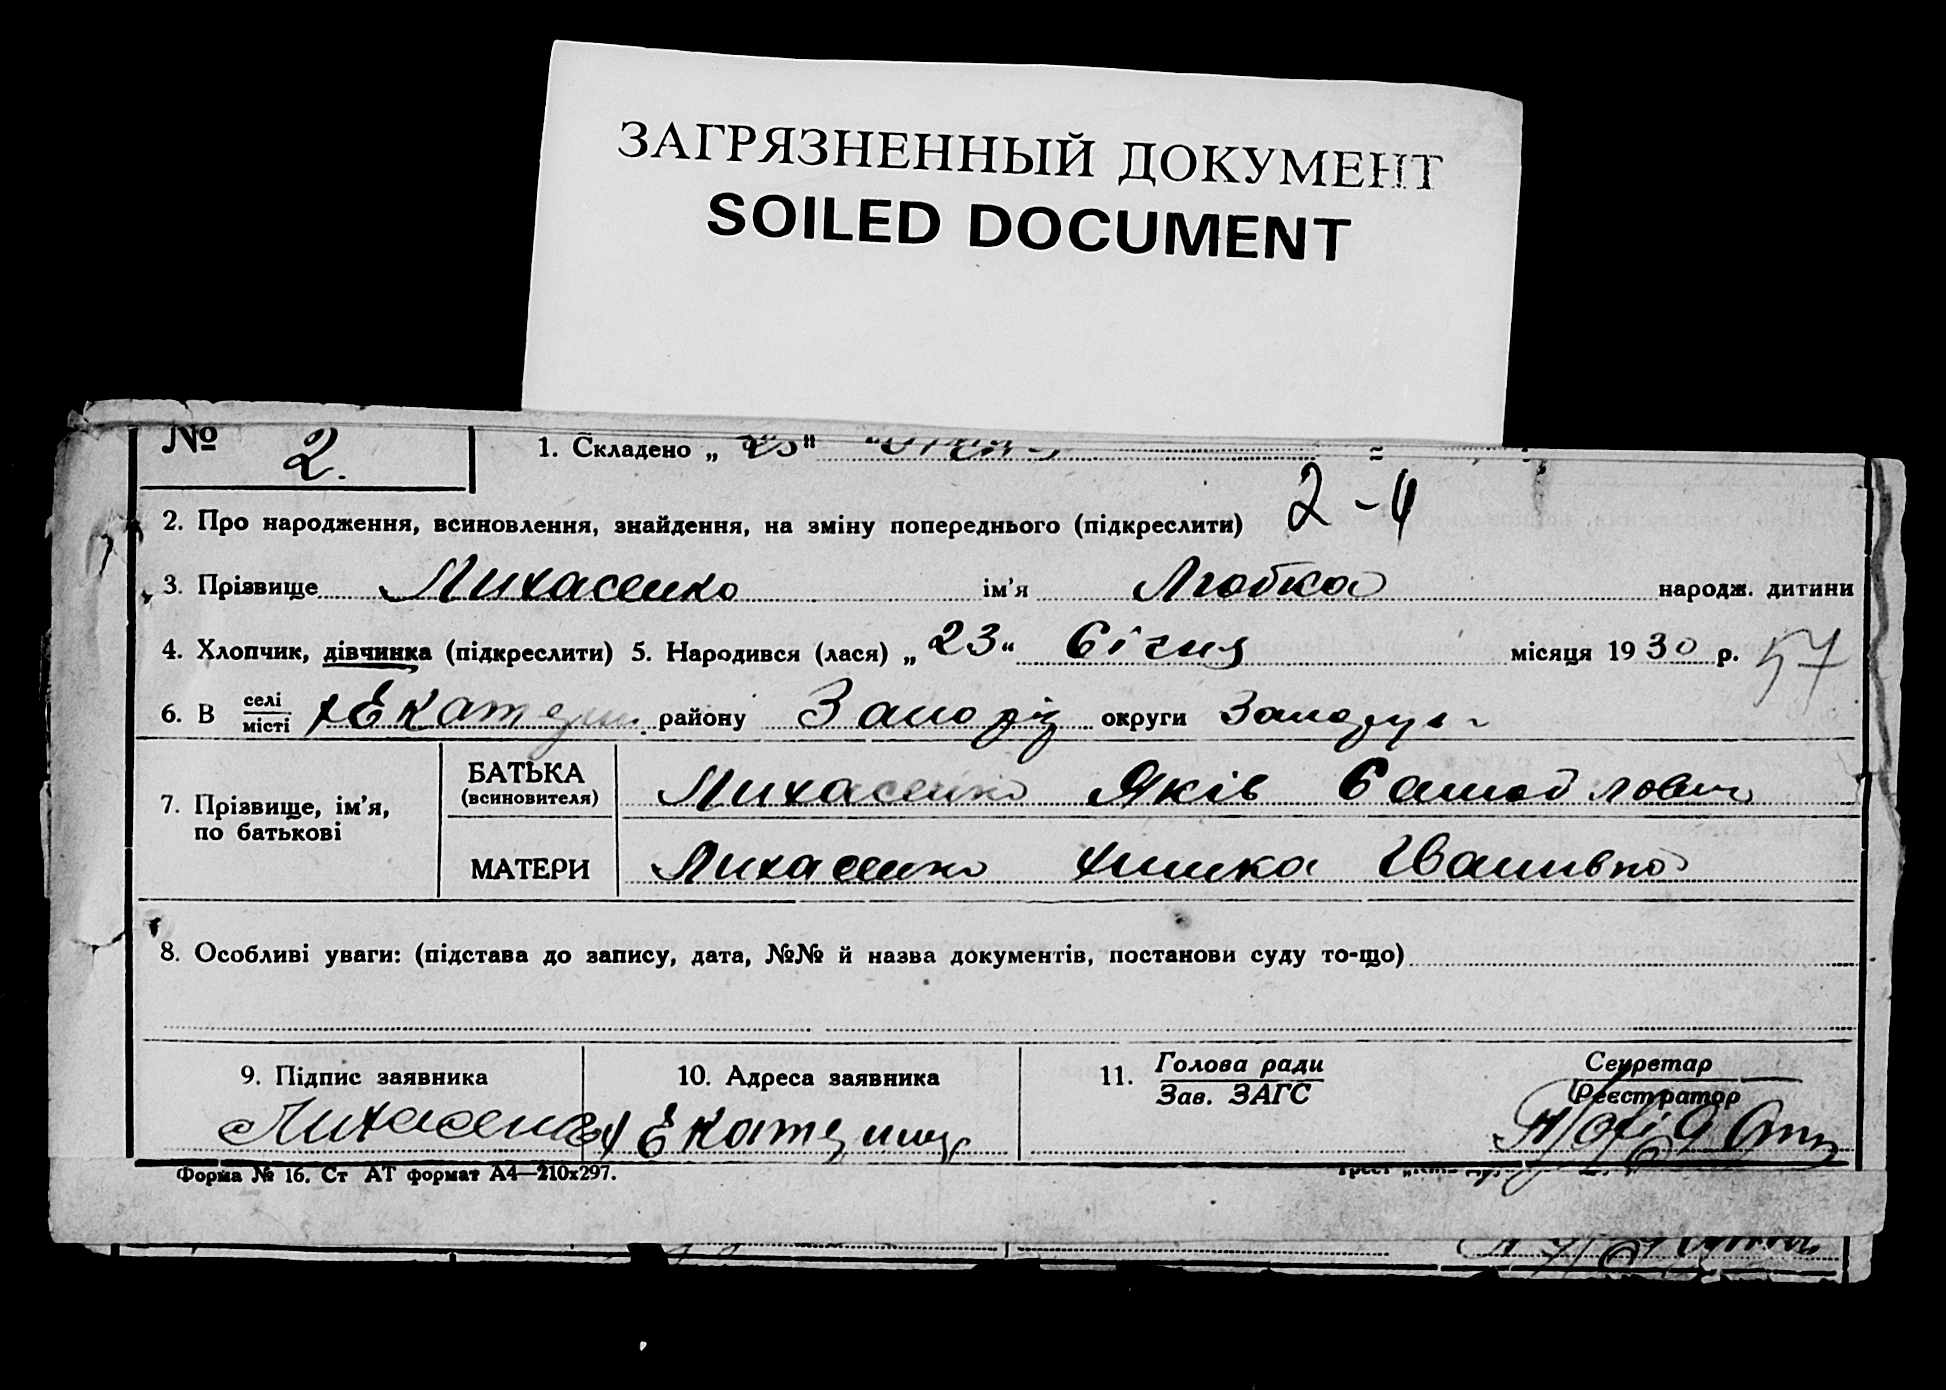 ЗАГРЯЗНЕННЫЙ ДОКУМЕНТ
SOILED DOCUMENT
№ 2.
1. Складено „ 25"
2. Про народження, всиновлення, знайдення, на зміну попереднього (підкреслити) 2-4
3. Прізвище Михасенко ім'я Любка народж. дитини
4. Хлопчик, дівчинка (підкреслити) 5. Народився (лася) „ 23" Січня місяця 1930 р. 57
6. В селі
місті х Екатерин. району Запоріз округи
7. Прізвище, ім'я,
по батькові
БАТЬКА
(всиновителя) Михасенко Яків
МАТЕРИ Михасенко Іванивна
8. Особливі уваги: (підстава до запису, дата, №№ й назва документів, постанови суду то-що)
9. Підпис заявника
Михасенко
10. Адреса заявника
х Екатерин
11. Голова ради
Зав. ЗАГС
Секретар
Реєстратор
Форма № 16. Ст АТ формат А4—210х297.